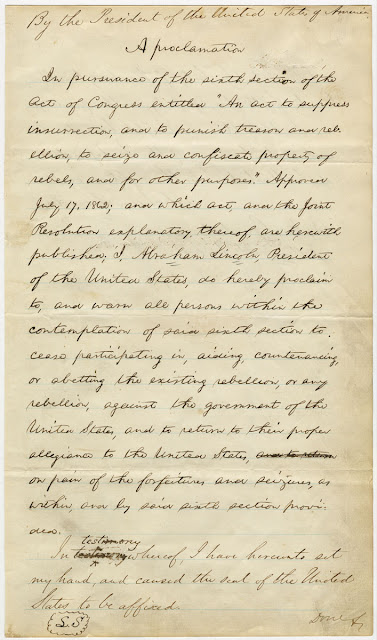 By the President of the United States of America.
A proclamation
In pursuance of the sixth section of the
Act of Congress entitled "An act to suppress
insurrection, and to punish treason and reb-
ellion, to seize and confiscate property of
rebels, and for other purposes." Approved
July 17, 1862; and which act, and the Joint
Resolution explanatory thereof, are herewith
published, I, Abraham Lincoln, President
of the United States, do hereby proclaim
to, and warn all persons within the
contemplation of said sixth section to
cease participating in, aiding, countenancing,
or abetting the existing rebellion, or any
rebellion, against the government of the
United States, and to return to their proper
allegiance to the United States, and to return
on pain of the forfeitures and seizures, as
within and by said sixth section provi-
ded.
testimony
In testimony whereof, I have hereunto set
my hand, and caused the seal of the United
States to be affixed.
L.S
Done